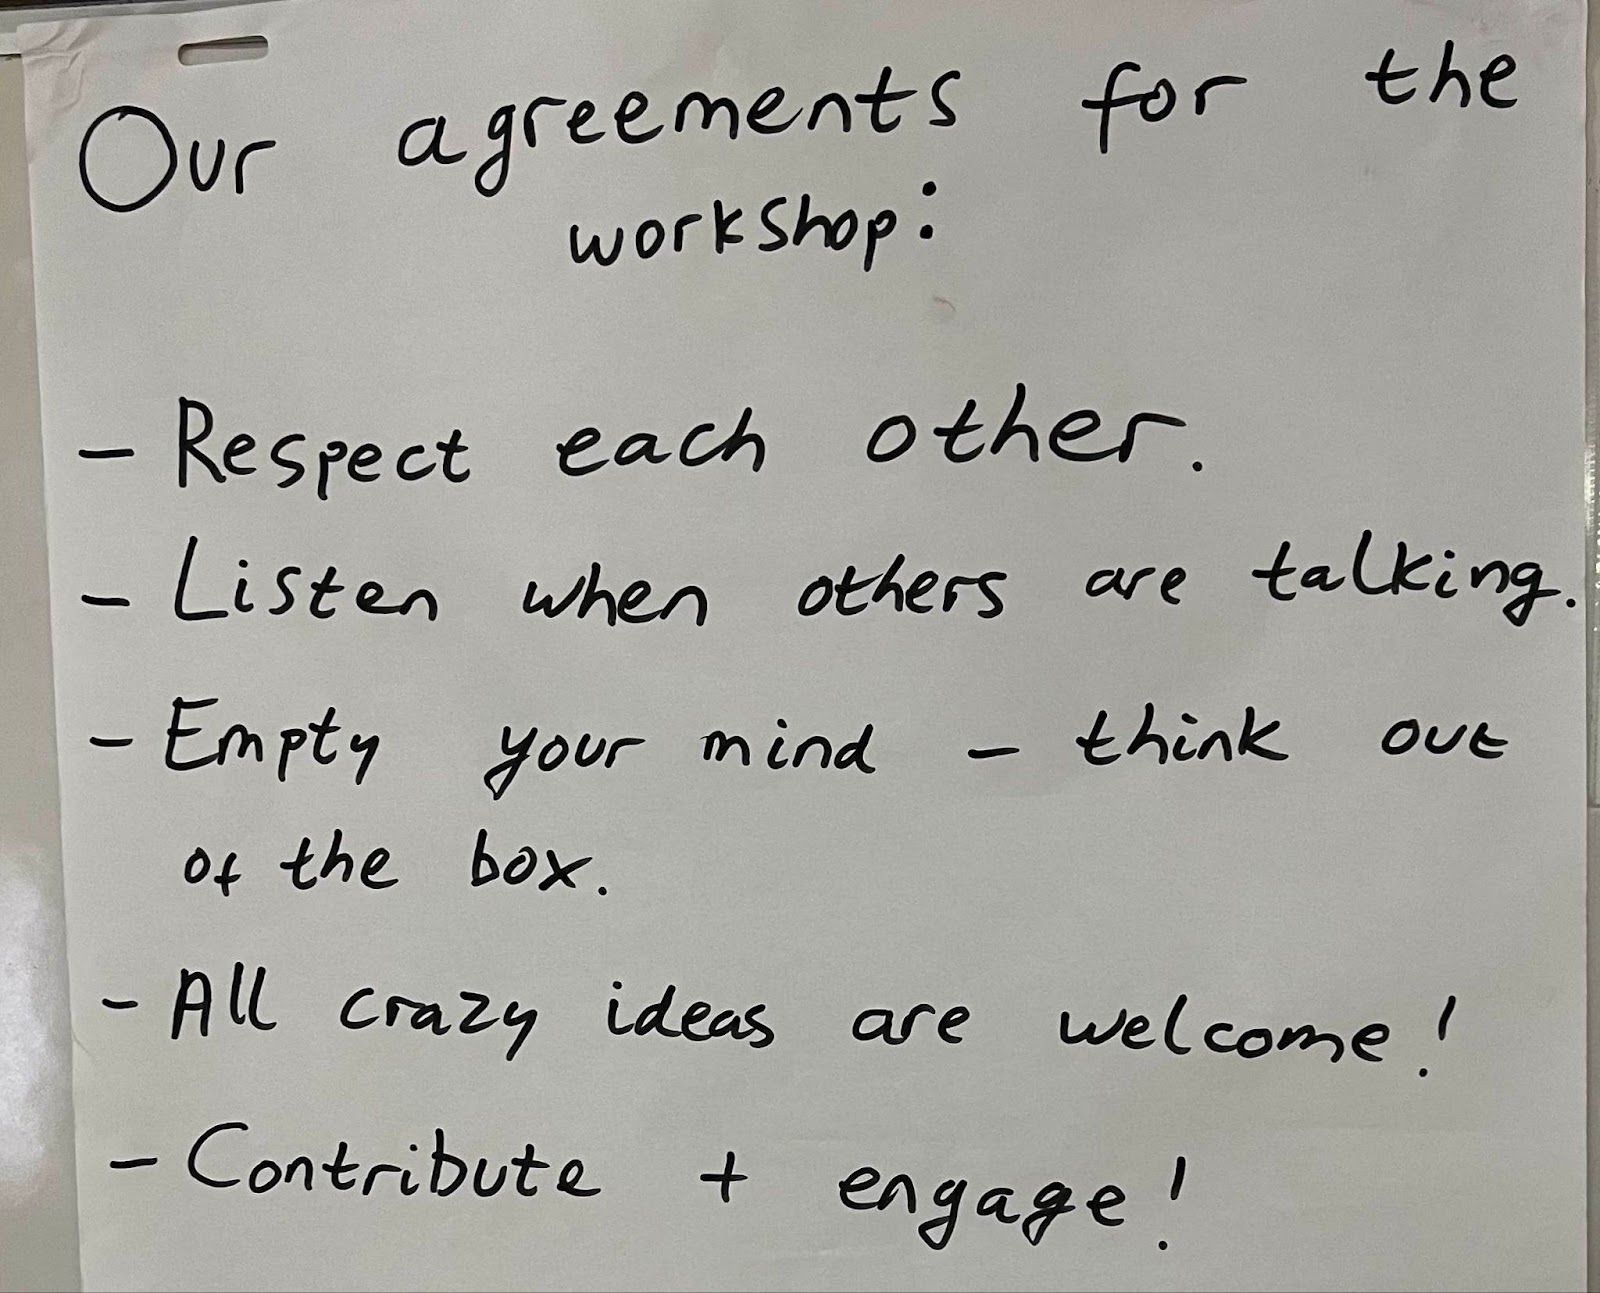 Our agreements for the
workshop:
- Respect each other.
- Listen when others are talking.
- Empty your mind - think out
of the box.
- All crazy ideas are welcome!
- Contribute + engage!